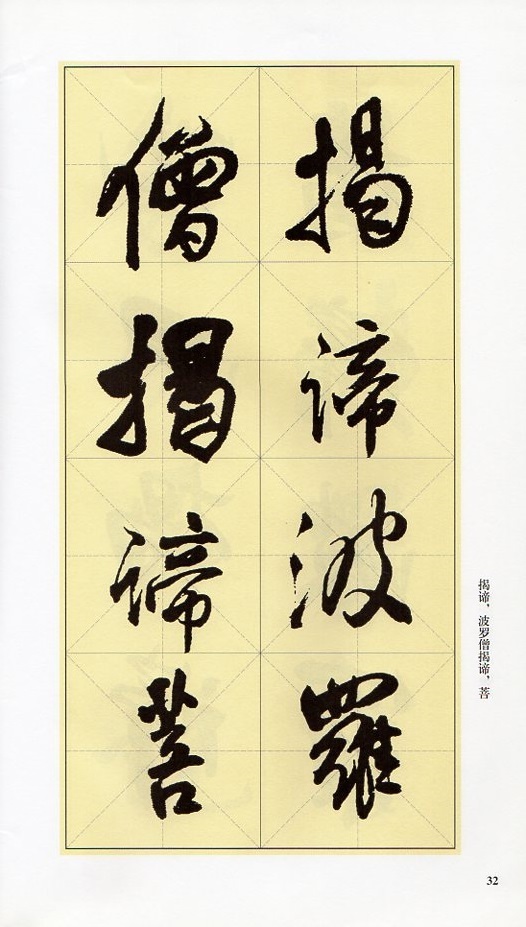 揭諦波羅
僧揭諦菩
揭谛，波罗僧揭谛，菩
32